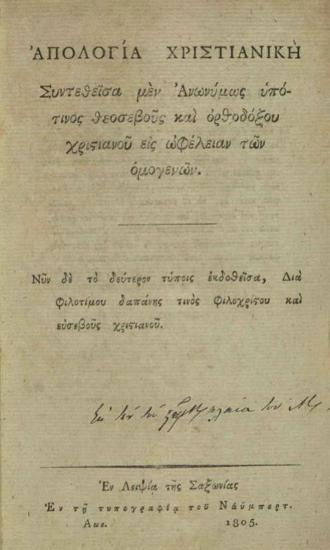 ἈΠΟΛΟΓΊΑ ΧΡΙΣΤΙΑΝΙΚῊ
Συντεθεῖσα μὲν Ἀνωνύμως ὑπό-
τινος θεοσεβοῦς καὶ ὀρθοδόξου
χριστιανοῦ εἰς ὠφέλειαν τῶν
ὁμογενῶν.
Νῦν δὲ τὸ δεύτερον τύποις ἐκδοθεῖσα, Διὰ
φιλοτίμου δαπάνης τινὸς φιλοχρίστου καὶ
εὐσεβοῦς χριστιανοῦ.
Ἐν Λειψίᾳ τῆς Σαξωνίας
Ἐν τῇ τυπογραφίᾳ τοῦ Ναύμπερτ.
1805.